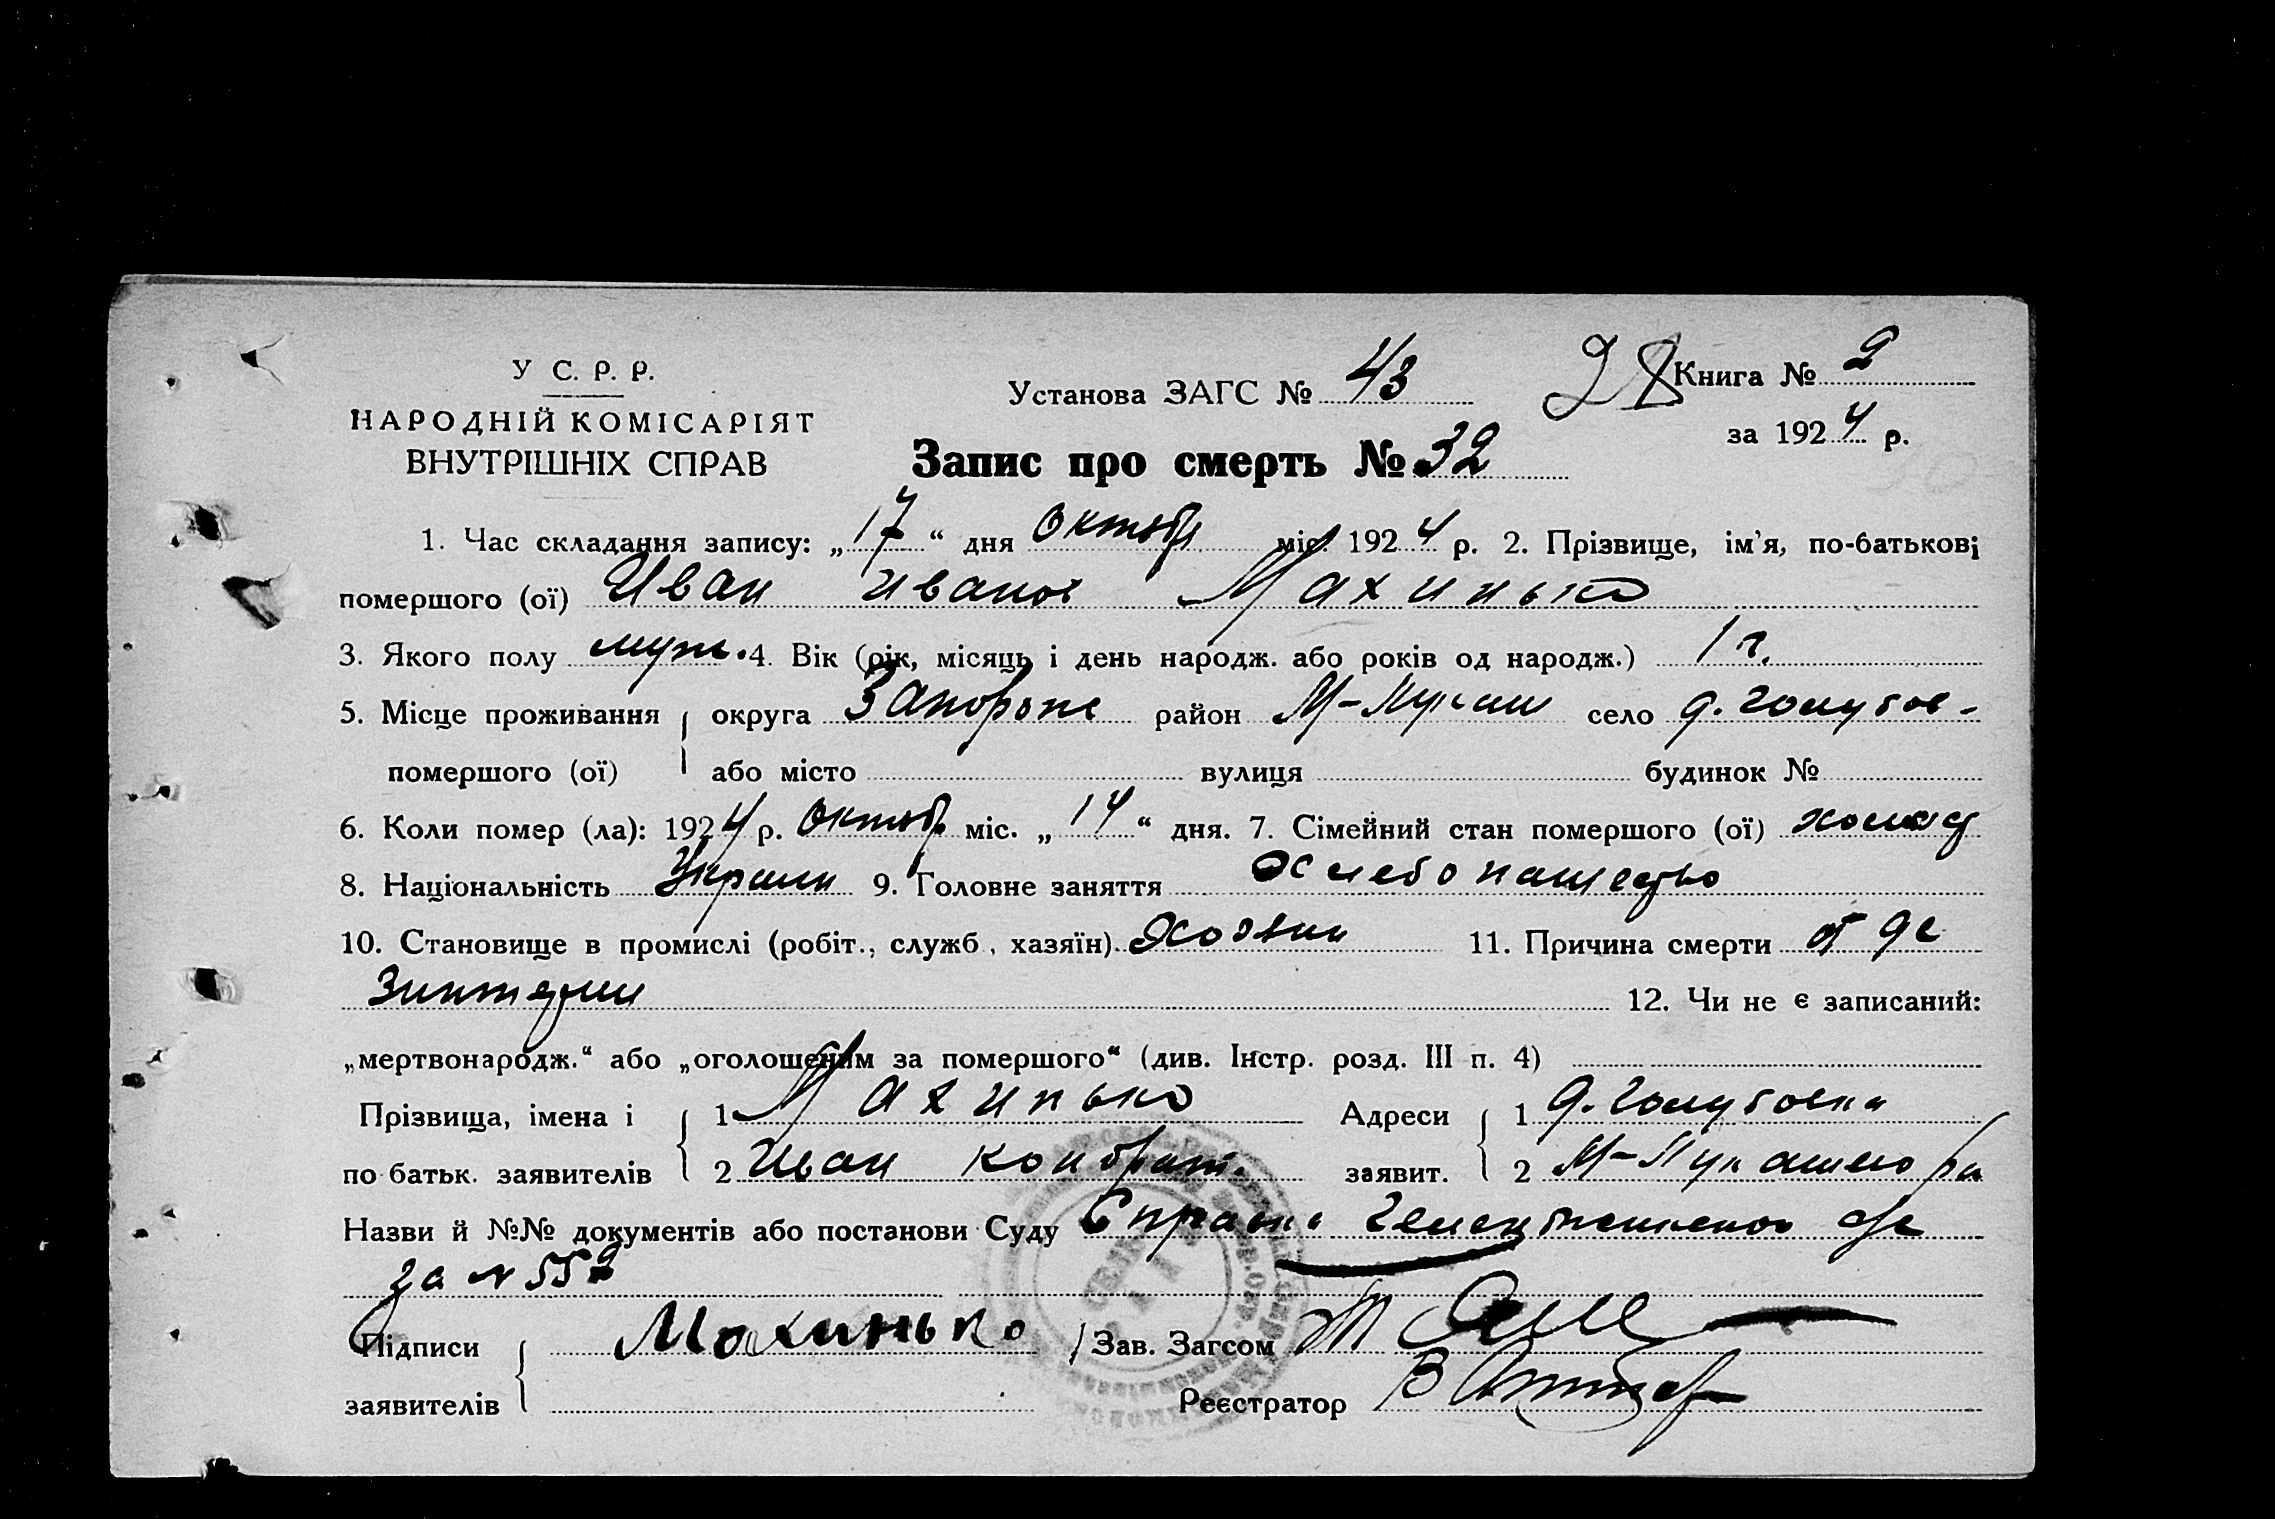 У С. Р. Р.
НАРОДНІЙ КОМІСАРІЯТ
ВНУТРІШНІХ СПРАВ
Установа ЗАГС № 43
28
Книга № 2
за 1924 р.
Запис про смерть № 32
1. Час складання запису: „17“ дня октябр міс. 1924 р. 2. Прізвище, ім'я, по-батькові
помершого (ої) Иван Иванов Махинько
3. Якого полу муж. 4. Вік (рік, місяць і день народж. або років од народж.) 1 г.
5. Місце проживання округа Запорож район М-Лукаш село д. Голубов-
помершого (ої) або місто вулиця будинок №
6. Коли помер (ла): 1924 р. октябр міс. „14“ дня. 7. Сімейний стан помершого (ої)
8. Національність Украин 9. Головне заняття Хлебопашество
10. Становище в промислі (робіт., служб, хазяїн) Хозяин 11. Причина смерти от де
зинтерии 12. Чи не є записаний:
„мертвонародж.“ або „оголошеним за помершого“ (див. Інстр. розд. III п. 4)
Прізвища, імена і 1 Махинько Адреси 1 д. Голубовка
по батьк. заявителів 2 Иван Кондрат. заявит. 2 М-Лукашево ра
Назви й №№ документів або постанови Суду Справка
за N 552
Підписи Махинько Зав. Загсом
заявителів Реєстратор